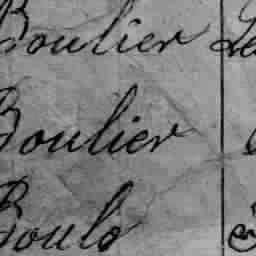 Boulier Le
Boulier
Boulo